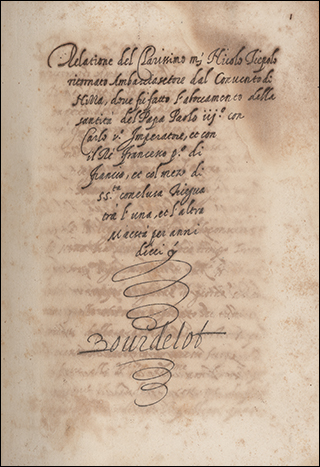 1
Relatione del Clarissimo mʃ Nicolo Tiepolo
ritornato Ambasciatore dal Convento di
Nizza, dove fu fatto l'aboccamento della
santità del Papa Paolo iijº con
Carlo vº Imperatore, et con
il Rè Francesco pº di
Francia, et col mezo di
ss.ta conclusa Tregua
trà l'una, et l'altra
Maestà per anni
dieci
Bourdelot